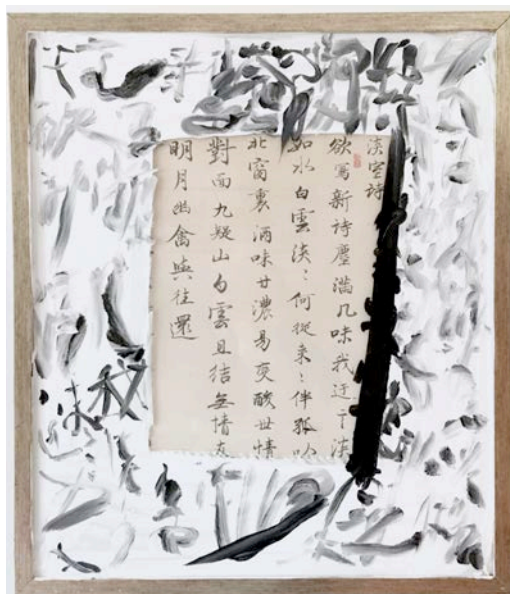 淡室詩
欲寫新詩塵滿几味我迂言淡
如水白雲淡〻何從来〻伴孤吟
北窗裏酒味甘濃易变酸世情
對面九疑山白雲且結無情友
明月幽禽與往還